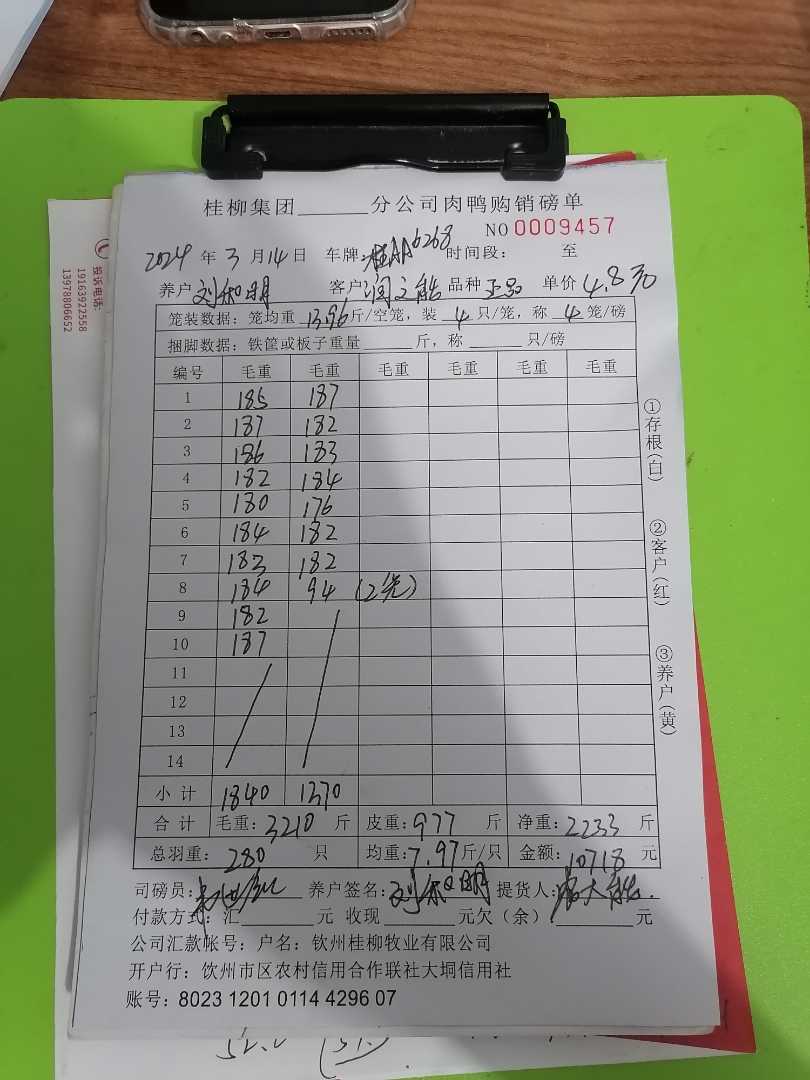 桂柳集团______分公司肉鸭购销磅单
NO 0009457
2024 年 3 月 14 日 车牌:桂AA6268 时间段: 至
养户 刘和明 客户 润文能 品种 正品 单价 4.8元
笼装数据：笼均重 13.96 斤/空笼，装 4 只/笼，称 4 笼/磅
捆脚数据：铁筐或板子重量______斤，称______只/磅
编号 毛重 毛重 毛重 毛重 毛重 毛重
1 185 187
2 187 182
3 186 183
4 182 184
5 180 176
6 184 182
7 183 182
8 184 94 (2笼)
9 182
10 187
11
12
13
14
小计 1840 1370
合计 毛重：3210 斤 皮重：977 斤 净重：2233 斤
总羽重：280 只 均重：7.97斤/只 金额：10718 元
司磅员： 养户签名：刘和明 提货人：
付款方式：汇______元 收现______元欠（余）______元
公司汇款帐号：户名：钦州桂柳牧业有限公司
开户行：饮州市区农村信用合作联社大垌信用社
账号：8023 1201 0114 4296 07
①存根（白）
②客户（红）
③养户（黄）
投诉电话：
19163922558
13978806652